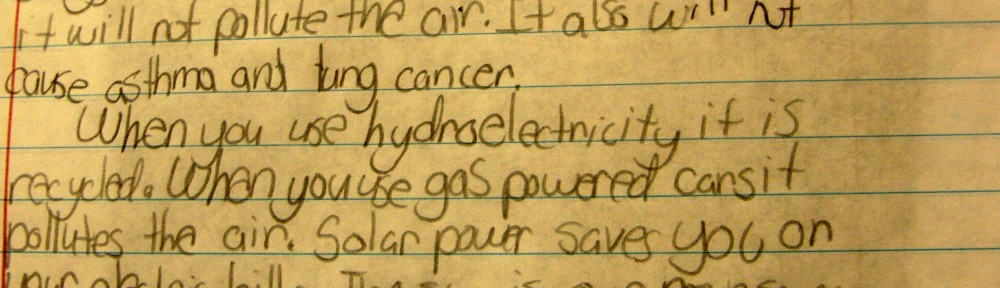 it will not pollute the air. It also will not
cause asthma and lung cancer.
When you use hydroelectricity it is
recycled. When you use gas powered cars it
pollutes the air. Solar power saves you on
your